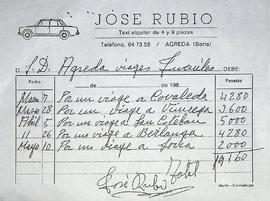 JOSE RUBIO
Taxi alquiler de 4 y 9 plazas
Teléfono, 64 73 58 / AGREDA (Soria)
S.D. Agreda viages Juveniles DEBE:
de de 198 Pesetas
7 Por un viage a Covaleda 4280
28 Por un Viage a Vinuesa 3600
Abril 5 Por un viage a San Esteban 5000
11 26 Por un viage a Berlanga 4280
Mayo 10 Por un viage a Soria 2000
Total 19160
José Rubio